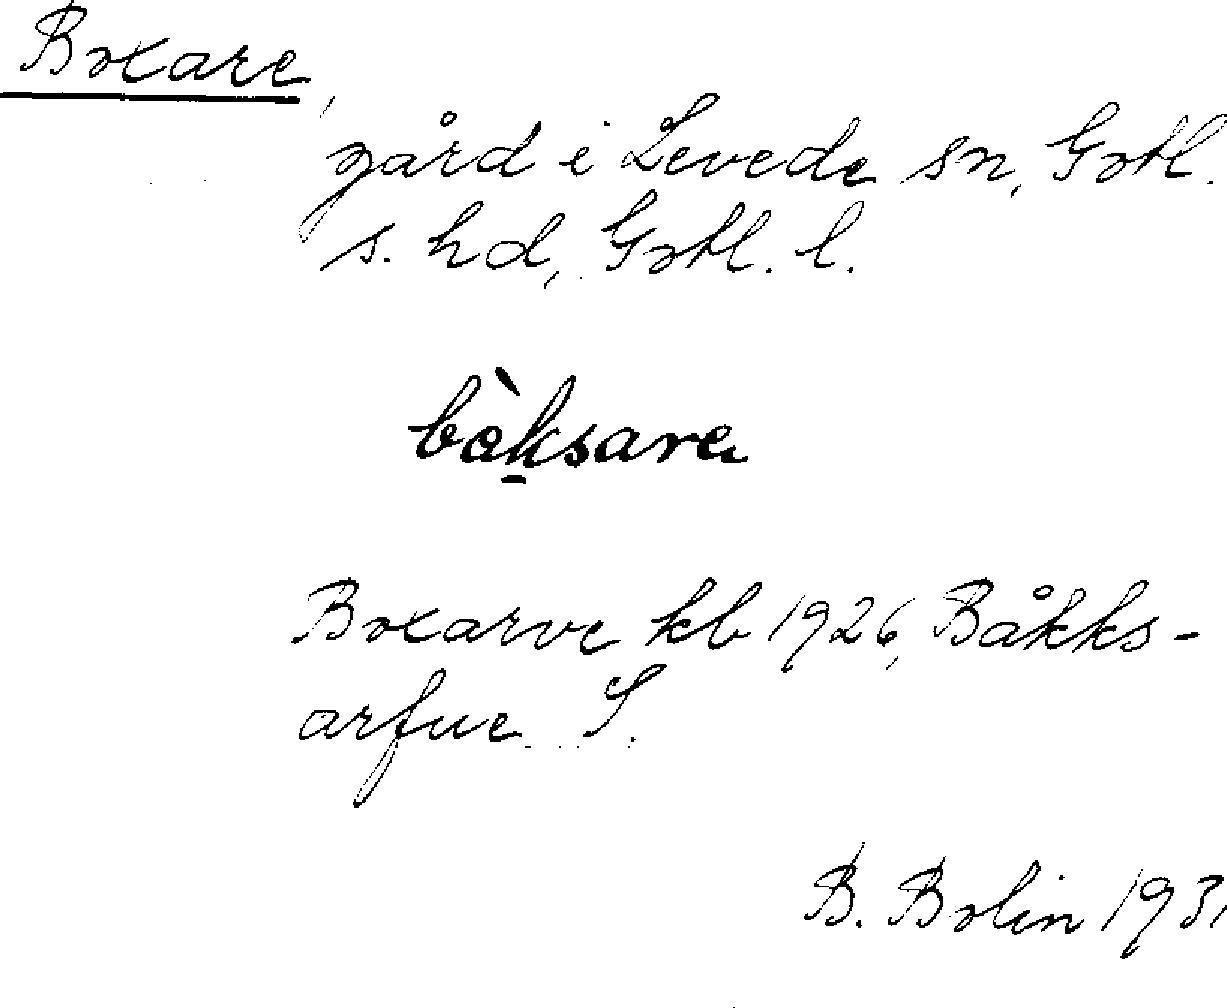 Boxare,
gård i Levede sn, Gotl.
s. hd, Gotl. l.
bòksarα
Boxarve kb 1926, Båkks-
arfue S.
B. Bolin 1931